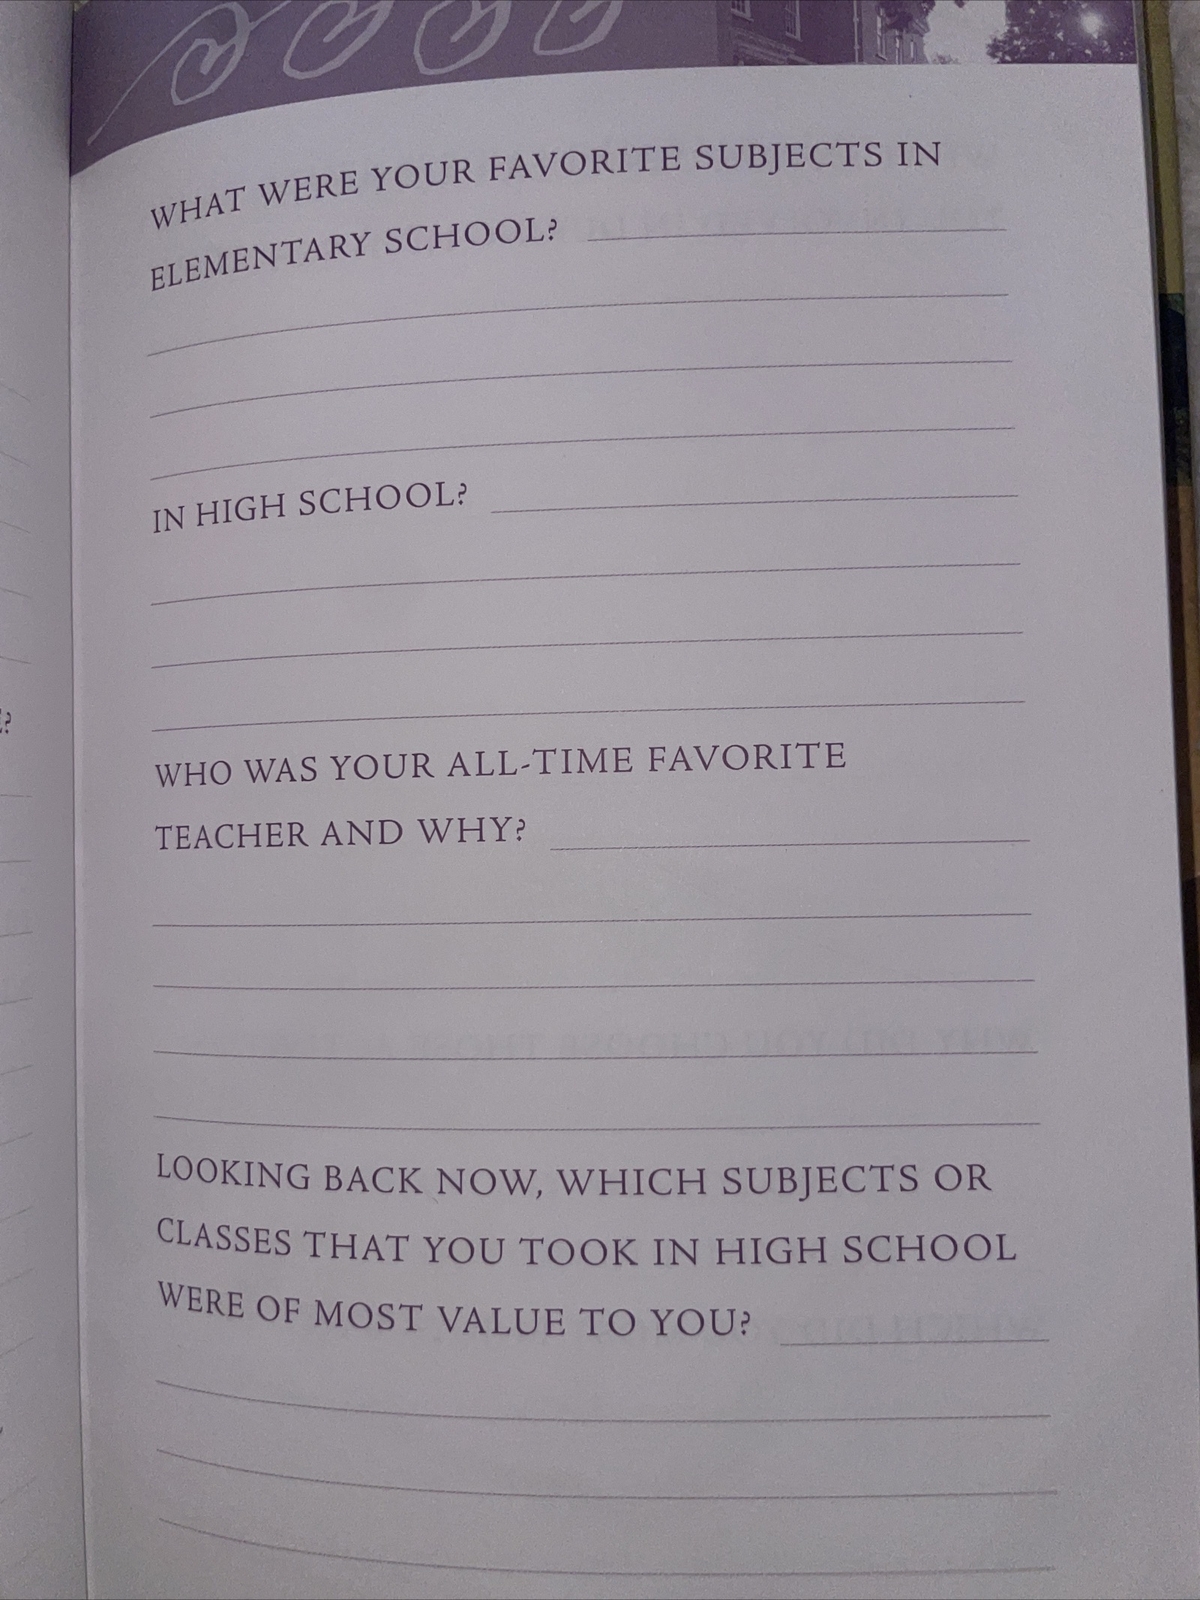 WHAT WERE YOUR FAVORITE SUBJECTS IN
ELEMENTARY SCHOOL?
IN HIGH SCHOOL?
WHO WAS YOUR ALL-TIME FAVORITE
TEACHER AND WHY?
LOOKING BACK NOW, WHICH SUBJECTS OR
CLASSES THAT YOU TOOK IN HIGH SCHOOL
WERE OF MOST VALUE TO YOU?